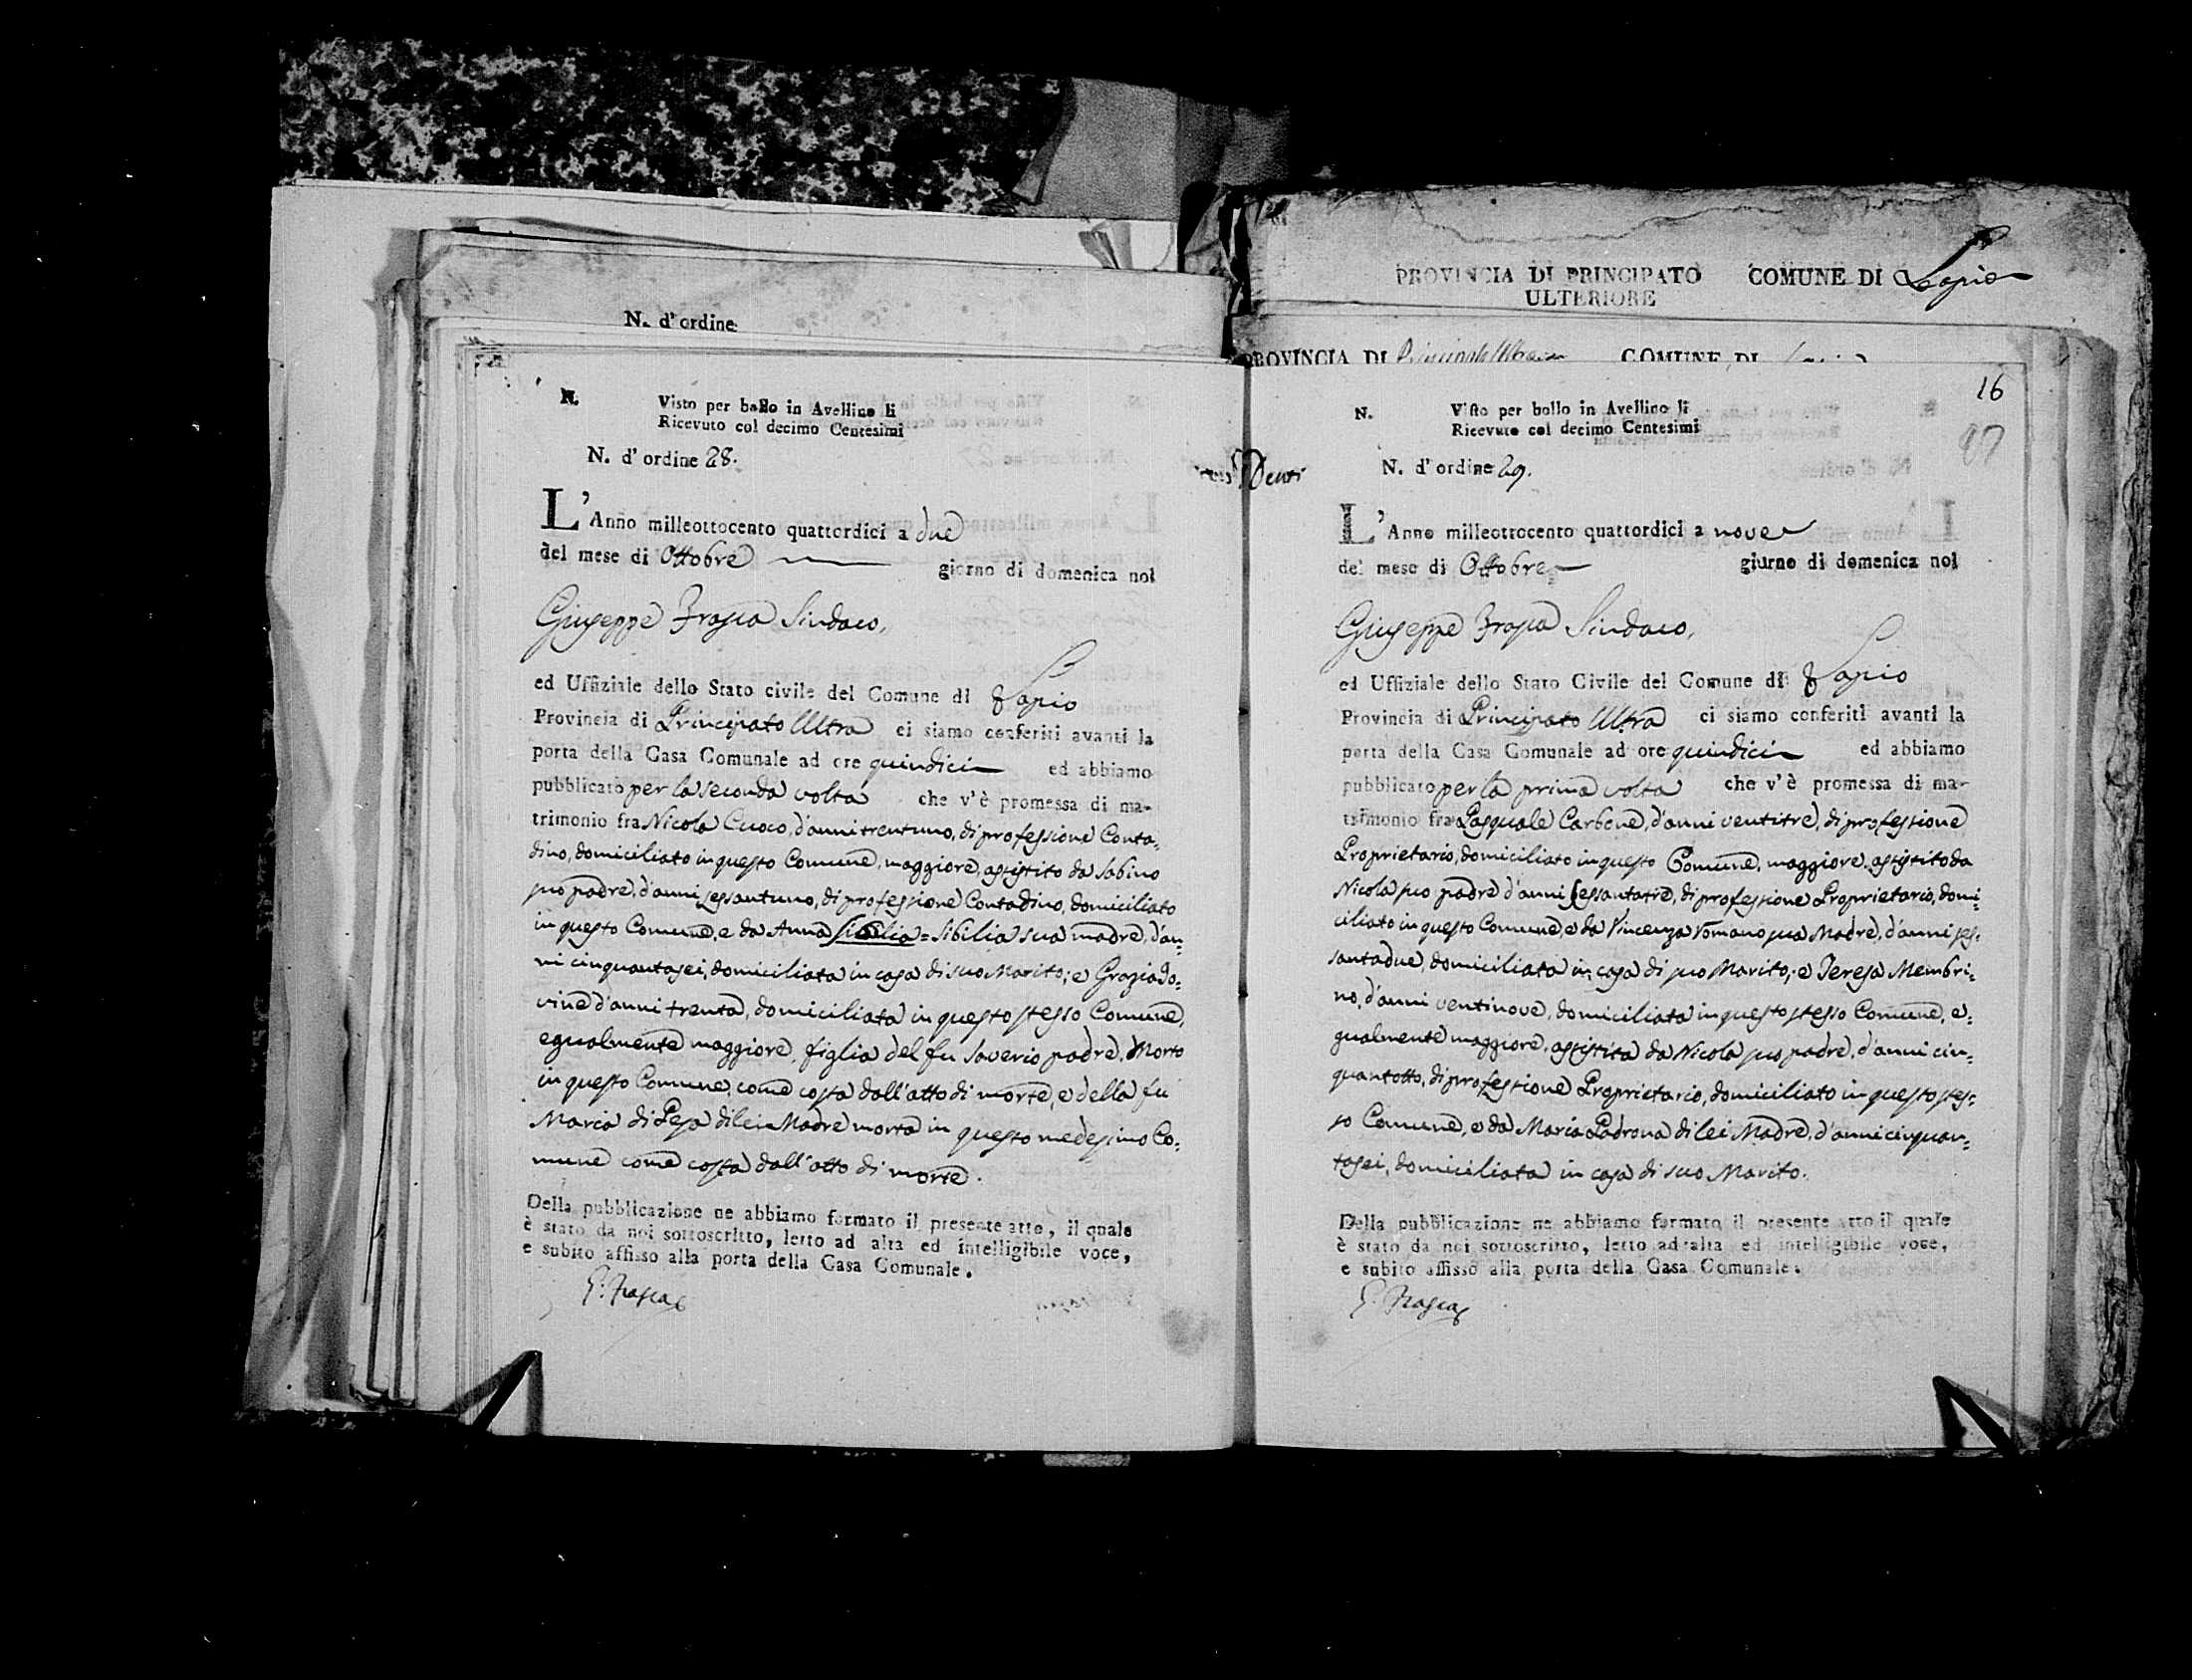 N. d'ordine
PROVINCIA DI PRINCIPATO ULTERIORE COMUNE DI Lapio
PROVINCIA DI COMUNE DI
N.
Visto per bollo in Avellino li
Ricevuto col decimo Centesimi
N. d'ordine 28.
L'Anno milleottocento quattordici a due
del mese di Ottobre giorno di domenica noi
Giuseppe Frasca Sindaco,
ed Uffiziale dello Stato civile del Comune di Lapio
Provincia di Principato Ultra ci siamo conferiti avanti la
porta della Casa Comunale ad ore quindici ed abbiamo
pubblicato per la seconda volta che v'è promessa di ma-
trimonio fra Nicola Cuoco, d'anni trentuno, di professione Conta=
dino, domiciliato in questo Comune, maggiore, assistito da Sabino
suo padre, d'anni sessantuno, di professione Contadino, domiciliato
in questo Comune, e da Anna = Sibilia sua madre, d'an=
ni cinquantasei, domiciliata in casa di suo Marito; e Grazia Jo=
vine d'anni trenta, domiciliata in questo stesso Comune,
egualmente maggiore, figlia del fu Saverio padre, Morto
in questo Comune, come costa dall'atto di morte, e della fu
Maria di Pesa di lei Madre morta in questo medesimo Co=
mune come costa dall'atto di morte.
Della pubblicazione ne abbiamo formato il presente atto, il quale
è stato da noi sottoscritto, letto ad alta ed intelligibile voce,
e subito affisso alla porta della Casa Comunale.
G. Frasca
16
97
N.
Visto per bollo in Avellino li
Ricevuto col decimo Centesimi
N. d'ordine 29.
L'Anno milleottocento quattordici a nove
del mese di Ottobre giorno di domenica noi
Giuseppe Frasca Sindaco,
ed Uffiziale dello Stato Civile del Comune di Lapio
Provincia di Principato Ultra ci siamo conferiti avanti la
porta della Casa Comunale ad ore quindici ed abbiamo
pubblicato per la prima volta che v'è promessa di ma-
trimonio fra Pasquale Carbone, d'anni ventitre, di professione
Proprietario, domiciliato in questo Comune, maggiore, assistito da
Nicola suo padre d'anni sessantatre, di professione Proprietario, domi=
ciliato in questo Comune, e da Vincenza Romano sua Madre, d'anni ses=
santadue, domiciliata in casa di suo Marito; e Teresa Membri=
no, d'anni ventinove, domiciliata in questo stesso Comune, e=
gualmente maggiore, assistita da Nicola suo padre, d'anni cin=
quantotto, di professione Proprietario, domiciliato in questo stes=
so Comune, e da Maria Padrona di lei Madre, d'anni cinquan=
tasei, domiciliata in casa di suo Marito.
Della pubblicazione ne abbiamo formato il presente atto il quale
è stato da noi sottoscritto, letto ad alta ed intelligibile voce,
e subito affisso alla porta della Casa Comunale.
G. Frasca